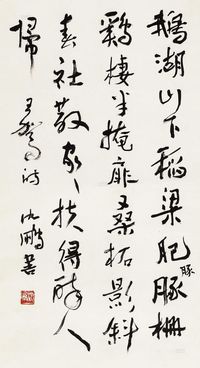 鵝湖山下稻梁肥豚柵
豚
鷄棲半掩扉桑柘影斜
春社散家々扶得醉人
歸 王駕詩 沈鵬書